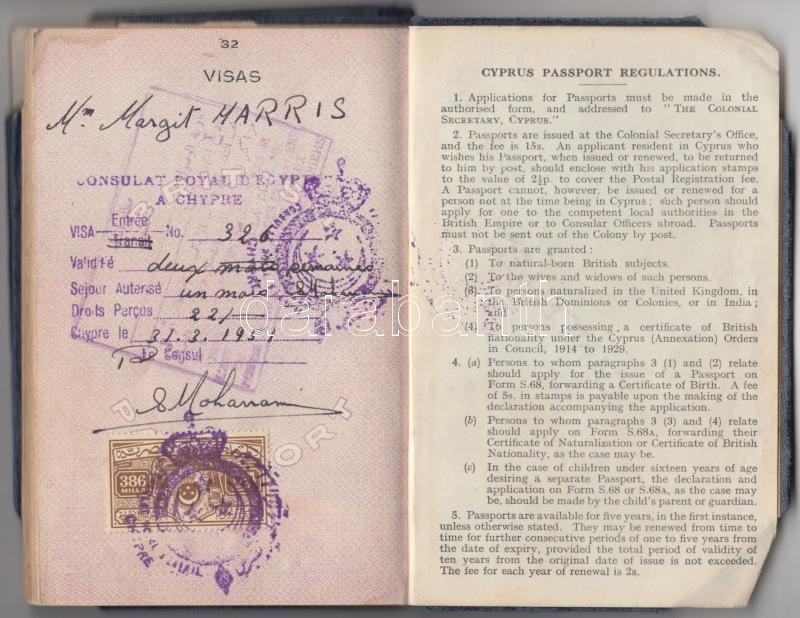 32
VISAS
Mme Margit HARRIS
CONSULAT ROYAL D'EGYPTE
A CHYPRE
Entrée
VISA Transit No. 326
Validité deux mois semaines
Sejour Autorisé un mois
Droits Perçus 22/-
Chypre le 31.3.1951
Le Consul
S Moharram
386
MILLS
CHYPRE
CYPRUS PASSPORT REGULATIONS.
1. Applications for Passports must be made in the
authorised form, and addressed to "THE COLONIAL
SECRETARY, CYPRUS."
2. Passports are issued at the Colonial Secretary's Office,
and the fee is 15s. An applicant resident in Cyprus who
wishes his Passport, when issued or renewed, to be returned
to him by post, should enclose with his application stamps
to the value of 2½p. to cover the Postal Registration fee.
A Passport cannot, however, be issued or renewed for a
person not at the time being in Cyprus; such person should
apply for one to the competent local authorities in the
British Empire or to Consular Officers abroad. Passports
must not be sent out of the Colony by post.
3. Passports are granted:
(1) To natural-born British subjects.
(2) To the wives and widows of such persons.
(3) To persons naturalized in the United Kingdom, in
the British Dominions or Colonies, or in India;
and
(4) To persons possessing a certificate of British
nationality under the Cyprus (Annexation) Orders
in Council, 1914 to 1929.
4. (a) Persons to whom paragraphs 3 (1) and (2) relate
should apply for the issue of a Passport on
Form S.68, forwarding a Certificate of Birth. A fee
of 5s. in stamps is payable upon the making of the
declaration accompanying the application.
(b) Persons to whom paragraphs 3 (3) and (4) relate
should apply on Form S.68A, forwarding their
Certificate of Naturalization or Certificate of British
Nationality, as the case may be.
(c) In the case of children under sixteen years of age
desiring a separate Passport, the declaration and
application on Form S.68 or S.68A, as the case may
be, should be made by the child's parent or guardian.
5. Passports are available for five years, in the first instance,
unless otherwise stated. They may be renewed from time to
time for further consecutive periods of one to five years from
the date of expiry, provided the total period of validity of
ten years from the original date of issue is not exceeded.
The fee for each year of renewal is 2s.
darabanth